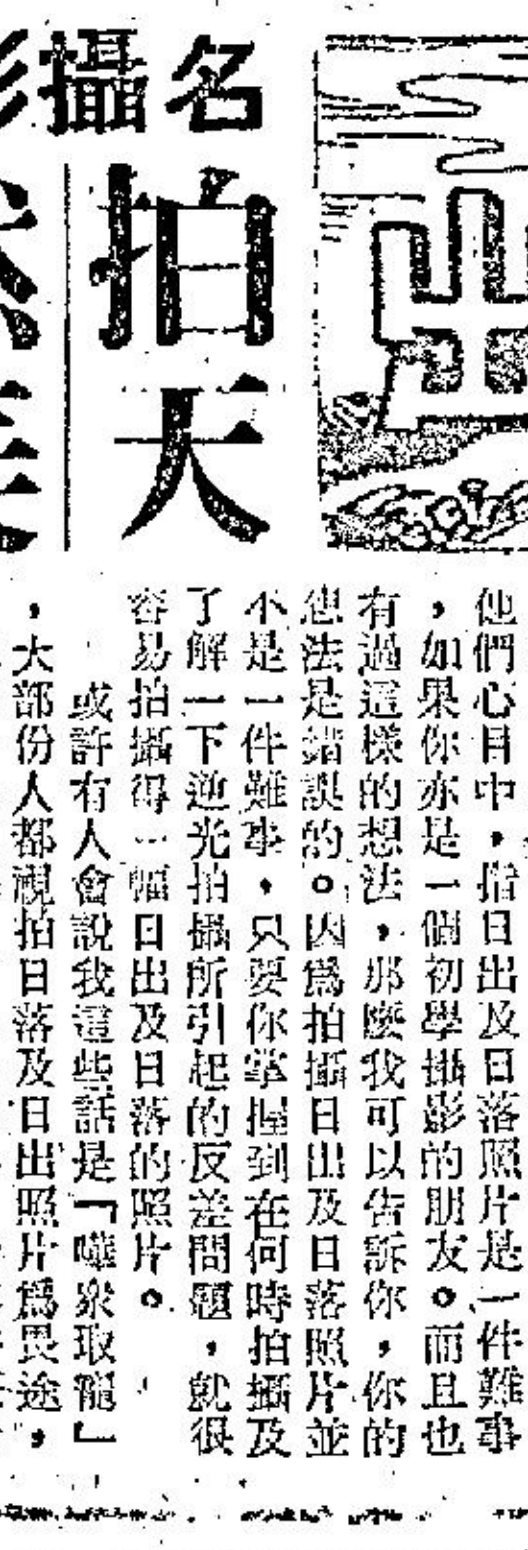 名攝影
出
拍天
他們心目中,指日出及日落照片是一件難事
,如果你亦是一個初學攝影的朋友。而且也
有過這樣的想法,那麼我可以告訴你,你的
想法是錯誤的。因爲拍攝日出及日落照片並
不是一件難事,只要你掌握到在何時拍攝及
了解一下逆光拍攝所引起的反差問題,就很
容易拍攝得一幅日出及日落的照片。
或許有人會說我這些話是「嘩衆取寵」
,大部份人都視拍日落及日出照片爲畏途,